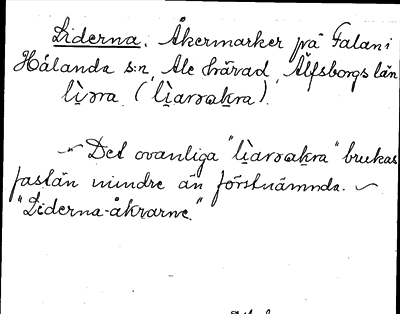 Liderna. Åkermarker på Falan i
Hålanda s:n, Ale härad, Älfsborgs län
lìɔra. (lìarɔakra).
"Det ovanliga "lìarɔakra" brukas
fastän mindre än förstnämnda.
"Liderna-åkrarne."